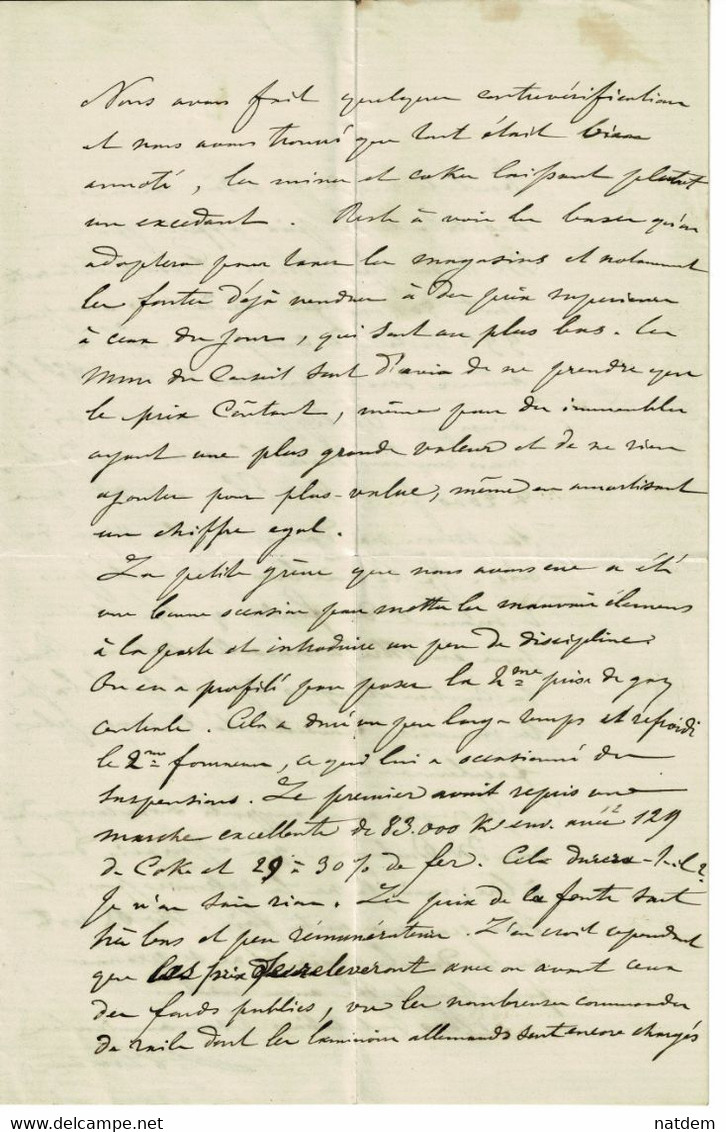 Nous avons fait quelques contrevérifications
et nous avons trouvé que tout était bien
annoté, les mines et cokes laissant plutôt
un excédant. Reste à voir les bases qu'on
adoptera pour taxer les magasins et notamment
les fontes déjà vendues à des prix supérieurs
à ceux du jour, qui sont au plus bas. Les
Mrs du Conseil sont d'avis de ne prendre que
le prix Coûtant, même pour des immeubles
ayant une plus grande valeur et de ne rien
ajouter pour plus-value, même en amortissant
un chiffre egal.
La petite grève que nous avons eue a été
une bonne occasion pour mettre les mauvais élémens
à la porte et introduire un peu de discipline.
On en a profité pour poser la 2me prise de gaz
centrale. Cela a duré un peu longtemps et refroidi
le 2me fourneau, ce qui lui a occasionné des
suspensions. Le premier avait repris une
marche excellente de 83.000 K env. avec 129
de Coke et 29 à 30% de fer. Cela durera-t-il?
Je n'en sais rien. Les prix de la fonte sont
très bas et peu rémunérateurs. L'on croit cependant
que les prix se releveront avec ou avant ceux
des fonds publics, vu les nombreuses commandes
de rails dont les laminoirs allemands sont encore chargés
natdem